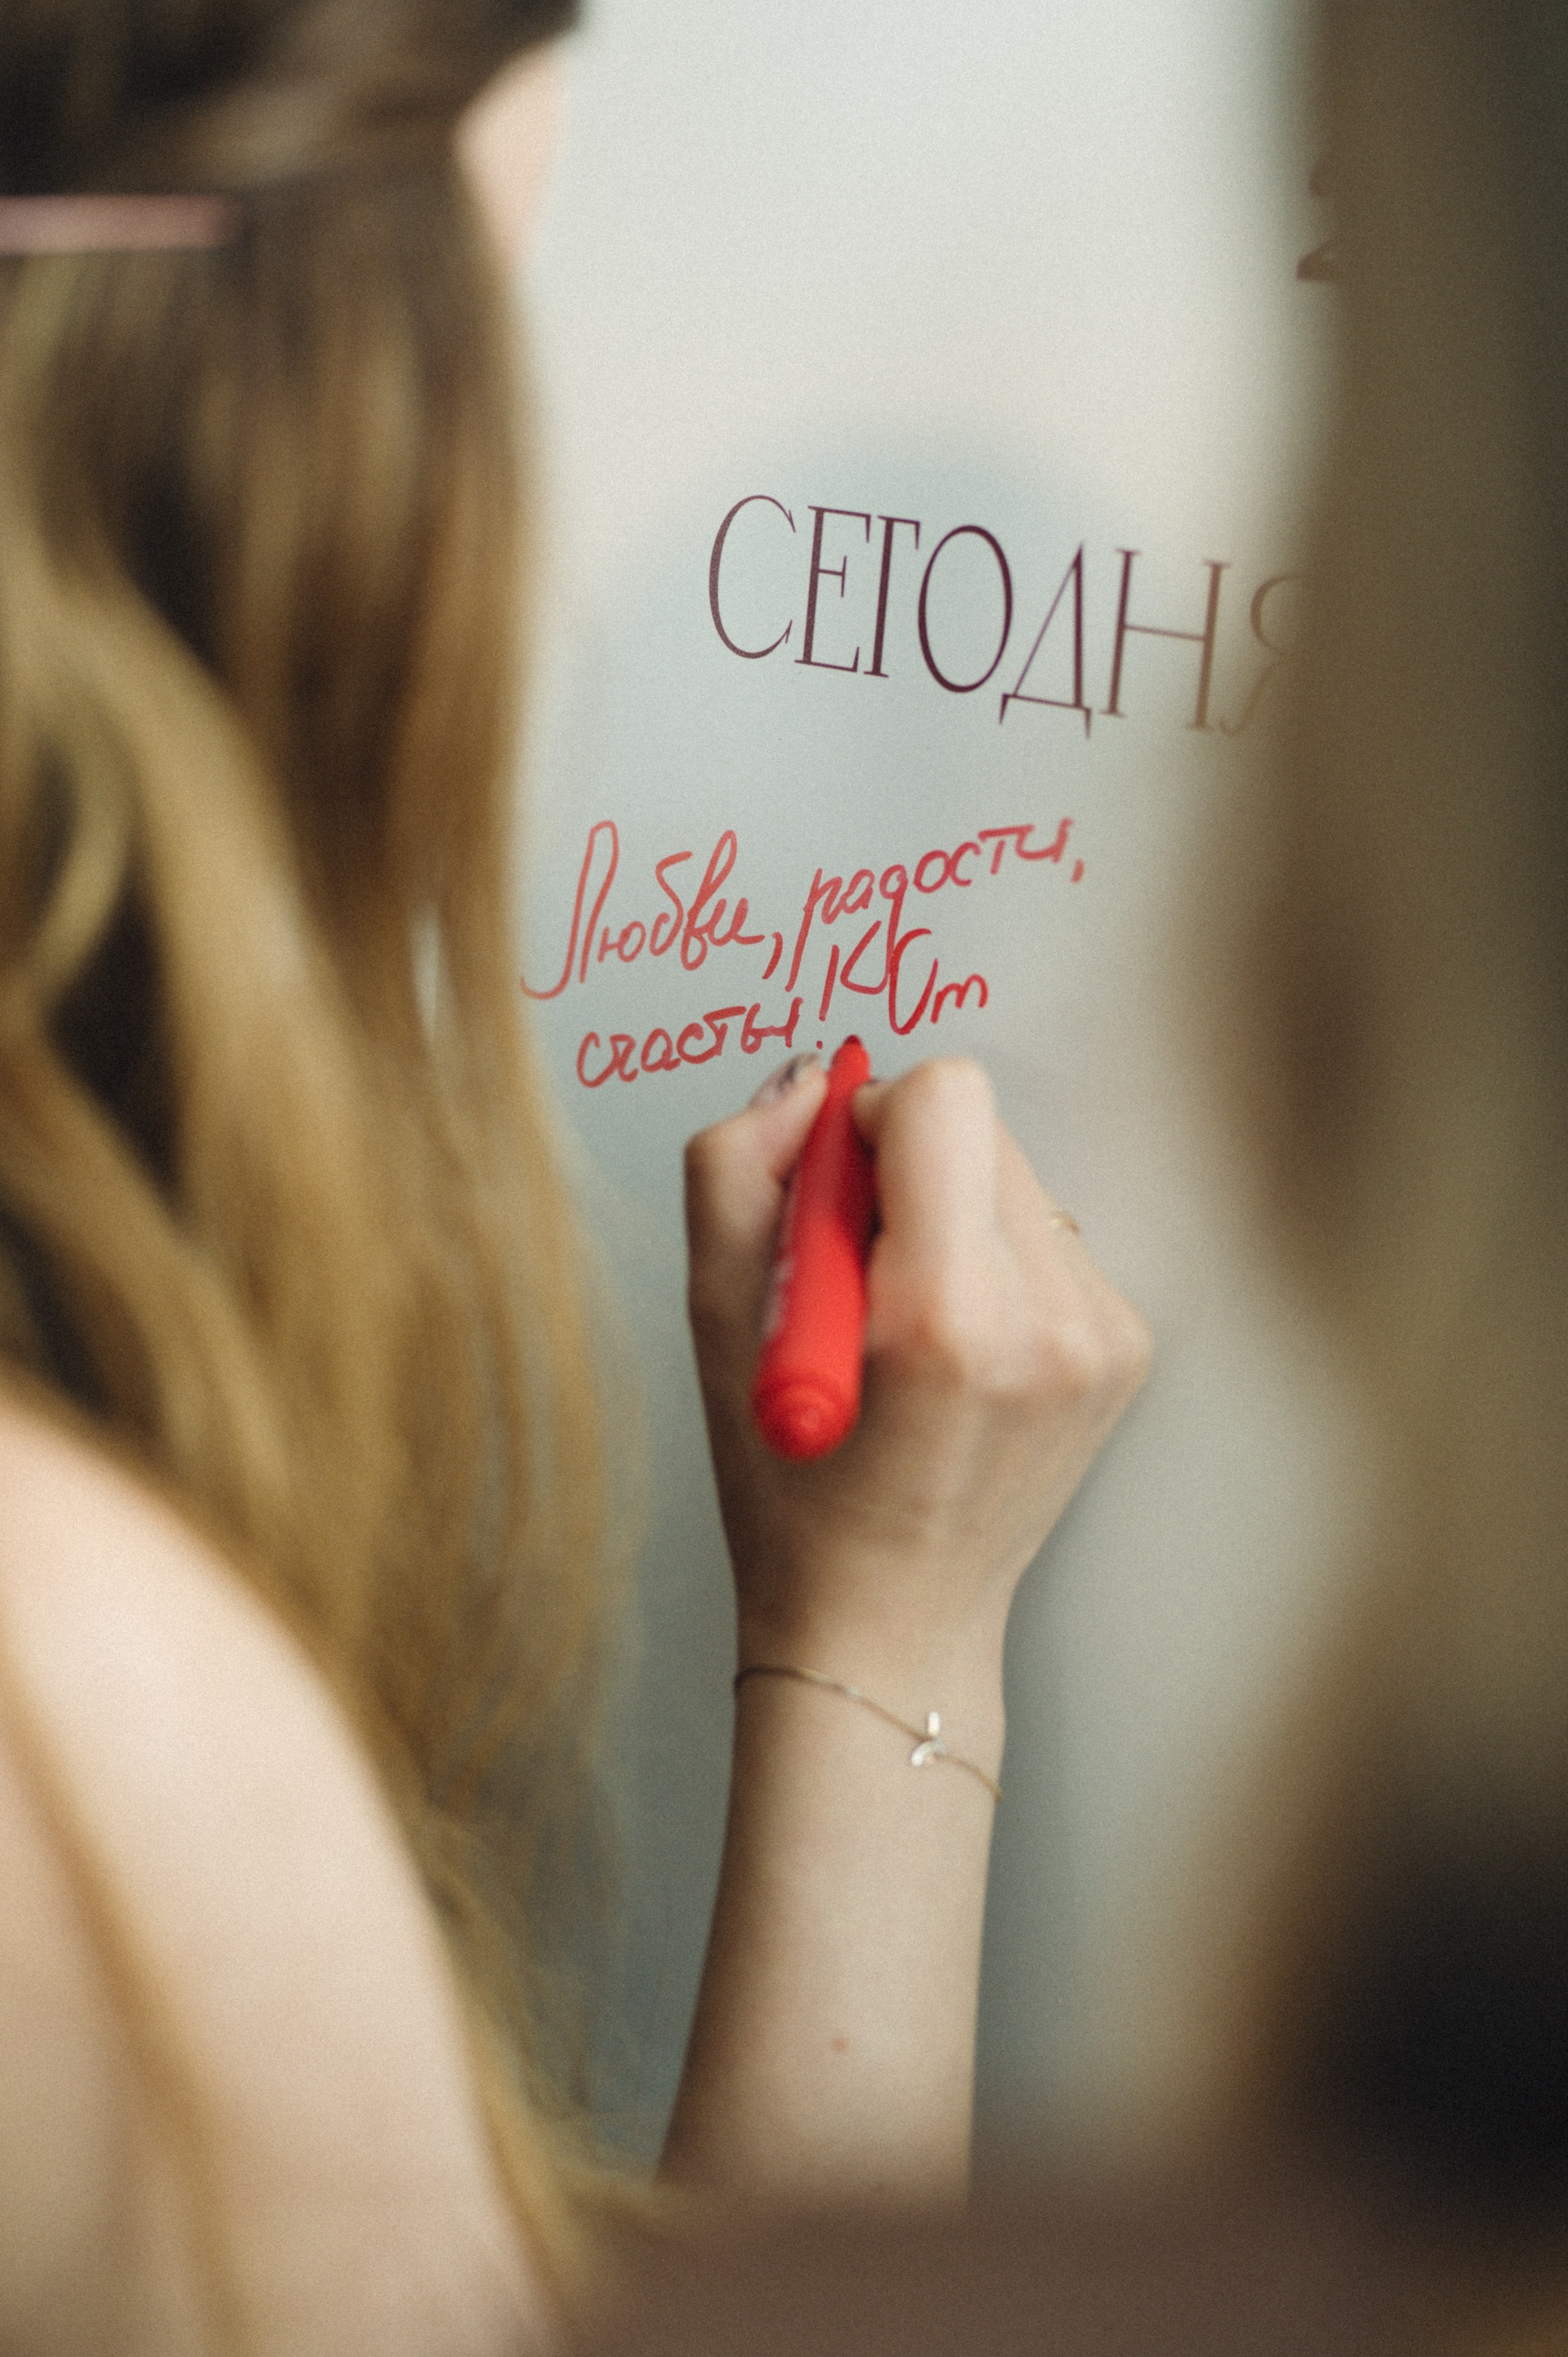 СЕГОДНЯ
Любви, радости,
счастья!